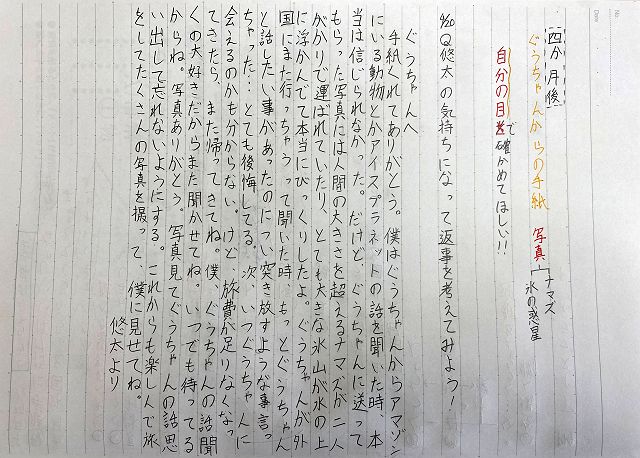 四か月後
ぐうちゃんからの手紙 写真 ナマズ
氷の惑星
自分の目で確かめてほしい!!
4/20 Q悠太の気持ちになって返事を考えてみよう!
ぐうちゃんへ
手紙くれてありがとう。僕はぐうちゃんからアマゾン
にいる動物とかアイスプラネットの話を聞いた時、本
当は信じられなかった。だけど、ぐうちゃんに送って
もらった写真には人間の大きさを超えるナマズが二人
がかりで運ばれていたり、とても大きな氷山が水の上
に浮かんでて本当にびっくりしたよ。ぐうちゃんが外
国にまた行っちゃうって聞いた時、もっとぐうちゃん
と話したい事があったのについ突き放すような事言っ
ちゃった…とても後悔してる。次、いつぐうちゃんに
会えるのかも分からない。けど、旅費が足りなくなっ
てきたら、また帰ってきてね。僕、ぐうちゃんの話聞
くの大好きだからまた聞かせてね。いつでも待ってる
からね。写真ありがとう。写真見てぐうちゃんの話思
い出して忘れないようにする。これからも楽しんで旅
をしてたくさんの写真を撮って、僕に見せてね。
悠太より